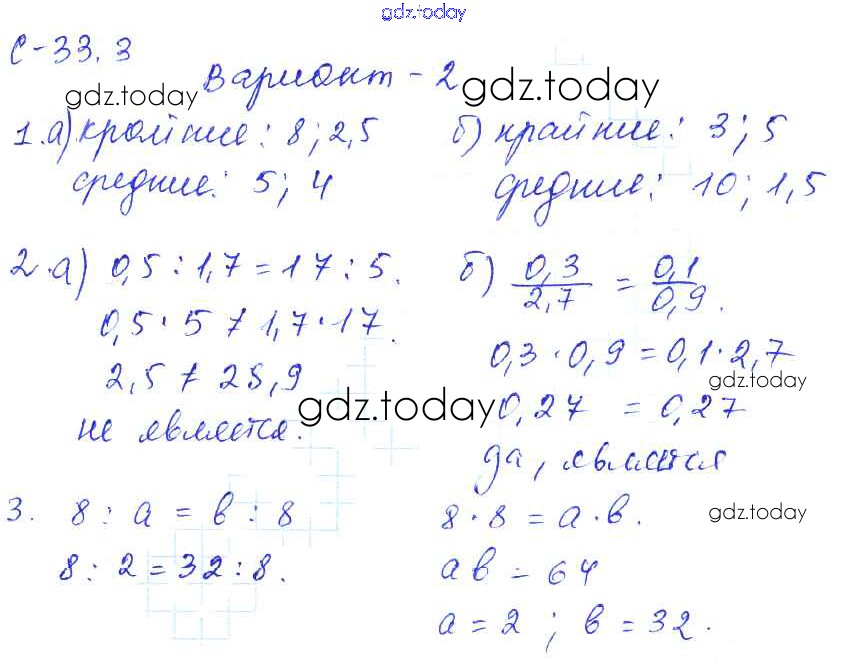 gdz.today
С-33.3
Вариант - 2
gdz.today gdz.today
1.а) крайние: 8; 2,5
средние: 5; 4
б) крайние: 3; 5
средние: 10; 1,5
2.а) 0,5 : 1,7 = 17 : 5.
0,5 · 5 ≠ 1,7 · 17.
2,5 ≠ 28,9
не является.
б) 0,3/2,7 = 0,1/0,9.
0,3 · 0,9 = 0,1 · 2,7
gdz.today
0,27 = 0,27
gdz.today
да, является
3. 8 : а = в : 8
8 : 2 = 32 : 8.
8 · 8 = а · в.
gdz.today
ав = 64
а = 2 ; в = 32.